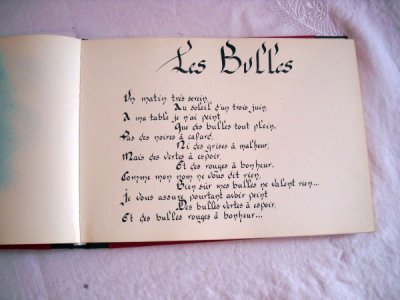 Les Bulles
Un matin très serein,
Au soleil d'un trois juin,
A ma table je n'ai peint
Que des bulles tout plein.
Pas des noires à cafard,
Ni des grises à malheur,
Mais des vertes à espoir,
Et des rouges à bonheur.
Comme mon nom ne vous dit rien
Bien sûr mes bulles ne valent rien...
Je vous assure pourtant avoir peint
Des bulles vertes à espoir,
Et des bulles rouges à bonheur...